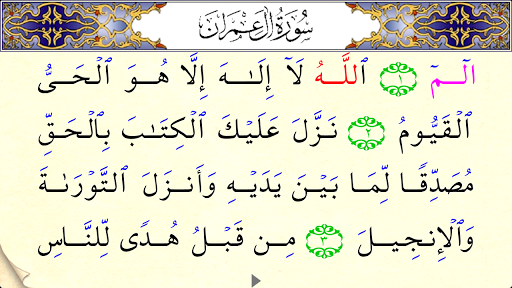 سُورَةُ آلِ عِمْرَانَ
الٓمٓ ١ ٱللَّهُ لَآ إِلَـٰهَ إِلَّا هُوَ ٱلْحَىُّ
ٱلْقَيُّومُ ٢ نَزَّلَ عَلَيْكَ ٱلْكِتَـٰبَ بِٱلْحَقِّ
مُصَدِّقًا لِّمَا بَيْنَ يَدَيْهِ وَأَنزَلَ ٱلتَّوْرَىٰةَ
وَٱلْإِنجِيلَ ٣ مِن قَبْلُ هُدًى لِّلنَّاسِ